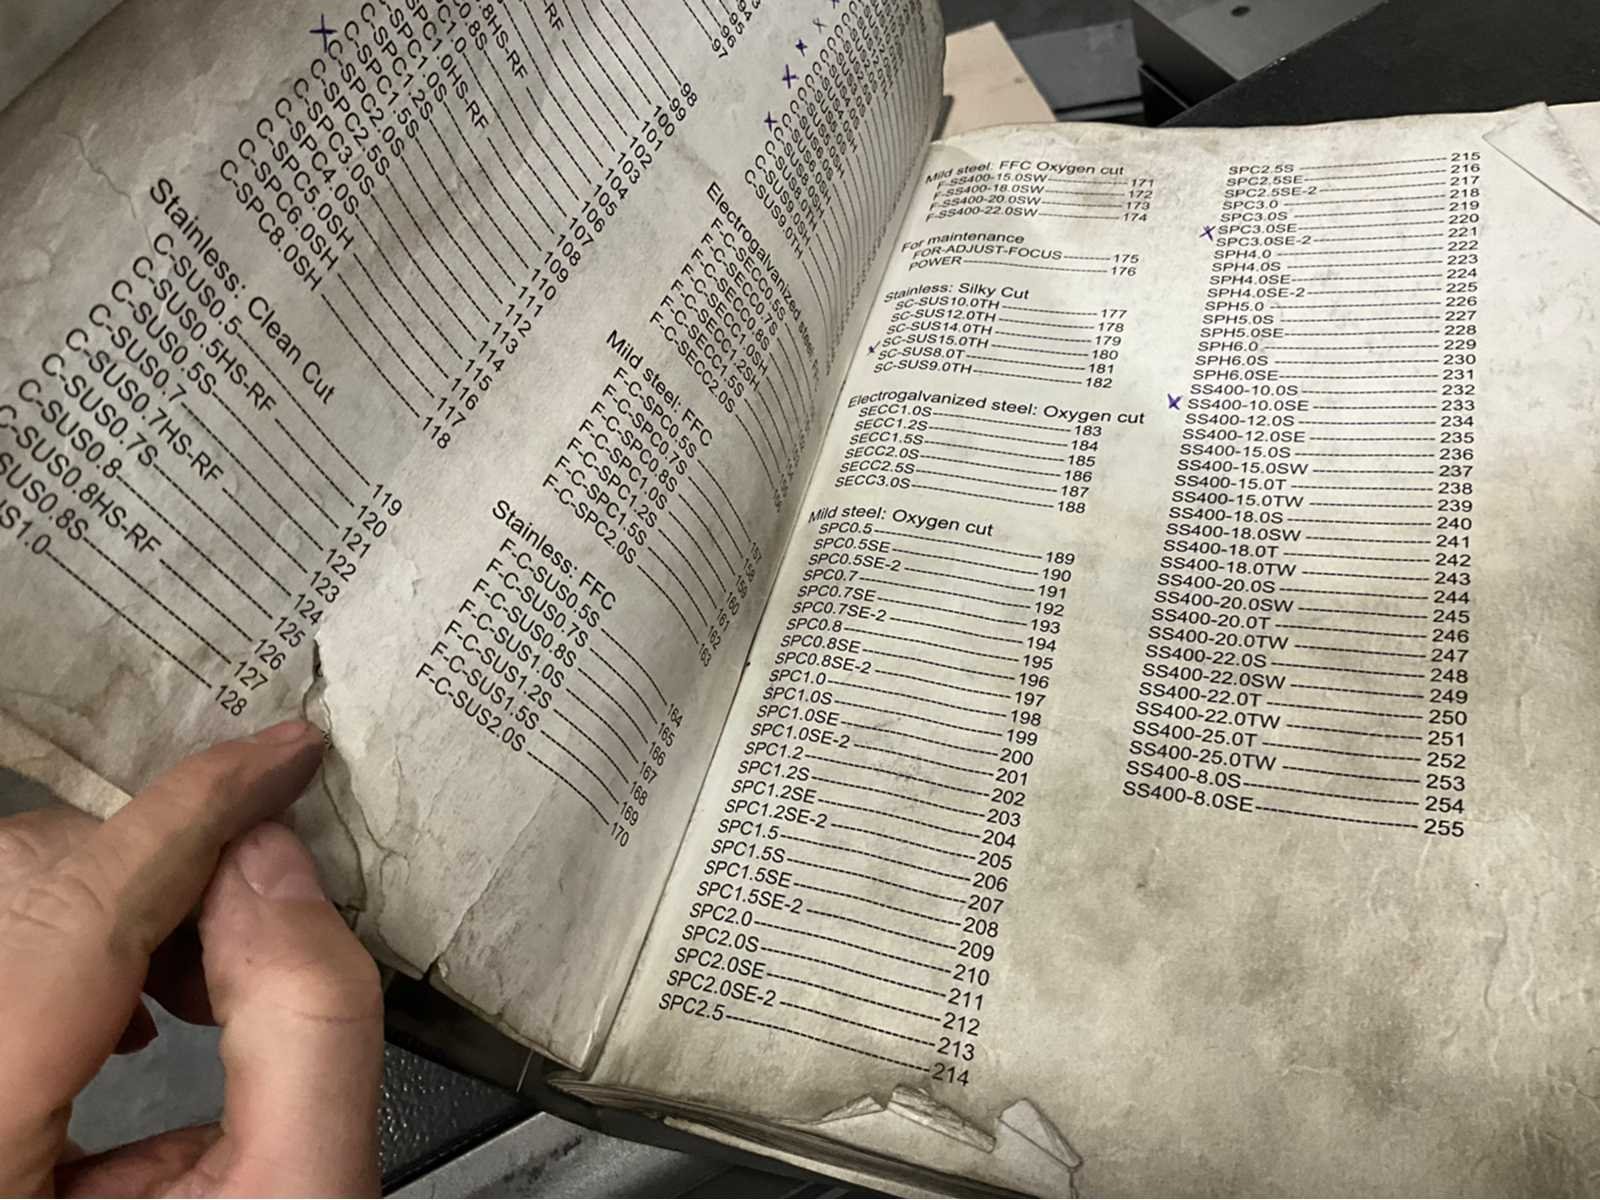 0.8HS-RF 105
0.8S 106
C-SPC1.0 107
C-SPC1.0HS-RF 108
C-SPC1.0S 109
C-SPC1.2S 110
C-SPC1.5S 111
C-SPC2.0S 112
C-SPC2.5S 113
C-SPC3.0S 114
C-SPC4.0S 115
C-SPC5.0SH 116
C-SPC6.0SH 117
C-SPC8.0SH 118
Stainless: Clean Cut
C-SUS0.5 119
C-SUS0.5HS-RF 120
C-SUS0.5S 121
C-SUS0.7 122
C-SUS0.7HS-RF 123
C-SUS0.7S 124
C-SUS0.8 125
C-SUS0.8HS-RF 126
SUS0.8S 127
US1.0 128
94
95
96
97
98
99
100
101
102
103
104
C-SUS8.0TH
C-SUS9.0SH
C-SUS9.0TH
Electrogalvanized steel:
F-C-SECC0.5S
F-C-SECC0.7S
F-C-SECC0.8S
F-C-SECC1.0SH
F-C-SECC1.2SH
F-C-SECC1.5S
F-C-SECC2.0S
Mild steel: FFC
F-C-SPC0.5S 157
F-C-SPC0.7S 158
F-C-SPC0.8S 159
F-C-SPC1.0S 160
F-C-SPC1.2S 161
F-C-SPC1.5S 162
F-C-SPC2.0S 163
Stainless: FFC
F-C-SUS0.5S 164
F-C-SUS0.7S 165
F-C-SUS0.8S 166
F-C-SUS1.0S 167
F-C-SUS1.2S 168
F-C-SUS1.5S 169
F-C-SUS2.0S 170
Mild steel: FFC Oxygen cut
F-SS400-15.0SW 171
F-SS400-18.0SW 172
F-SS400-20.0SW 173
F-SS400-22.0SW 174
For maintenance
FOR-ADJUST-FOCUS 175
POWER 176
Stainless: Silky Cut
SC-SUS10.0TH 177
SC-SUS12.0TH 178
SC-SUS14.0TH 179
SC-SUS15.0TH 180
SC-SUS8.0T 181
SC-SUS9.0TH 182
Electrogalvanized steel: Oxygen cut
SECC1.0S 183
SECC1.2S 184
SECC1.5S 185
SECC2.0S 186
SECC2.5S 187
SECC3.0S 188
Mild steel: Oxygen cut
SPC0.5 189
SPC0.5SE 190
SPC0.5SE-2 191
SPC0.7 192
SPC0.7SE 193
SPC0.7SE-2 194
SPC0.8 195
SPC0.8SE 196
SPC0.8SE-2 197
SPC1.0 198
SPC1.0S 199
SPC1.0SE 200
SPC1.0SE-2 201
SPC1.2 202
SPC1.2S 203
SPC1.2SE 204
SPC1.2SE-2 205
SPC1.5 206
SPC1.5S 207
SPC1.5SE 208
SPC1.5SE-2 209
SPC2.0 210
SPC2.0S 211
SPC2.0SE 212
SPC2.0SE-2 213
SPC2.5 214
SPC2.5S 215
SPC2.5SE 216
SPC2.5SE-2 217
SPC3.0 218
SPC3.0S 219
SPC3.0SE 220
SPC3.0SE-2 221
SPH4.0 222
SPH4.0S 223
SPH4.0SE 224
SPH4.0SE-2 225
SPH5.0 226
SPH5.0S 227
SPH5.0SE 228
SPH6.0 229
SPH6.0S 230
SPH6.0SE 231
SS400-10.0S 232
SS400-10.0SE 233
SS400-12.0S 234
SS400-12.0SE 235
SS400-15.0S 236
SS400-15.0SW 237
SS400-15.0T 238
SS400-15.0TW 239
SS400-18.0S 240
SS400-18.0SW 241
SS400-18.0T 242
SS400-18.0TW 243
SS400-20.0S 244
SS400-20.0SW 245
SS400-20.0T 246
SS400-20.0TW 247
SS400-22.0S 248
SS400-22.0SW 249
SS400-22.0T 250
SS400-22.0TW 251
SS400-25.0T 252
SS400-25.0TW 253
SS400-8.0S 254
SS400-8.0SE 255